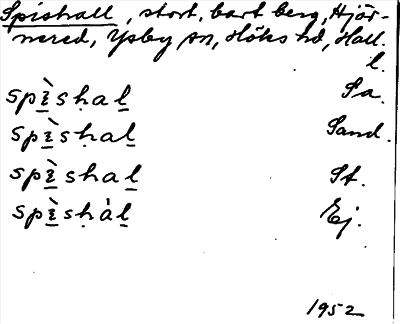 Spishall, stort, bart berg, Hjör-
nered, Ysby sn, Höks hd, Hall.
l.
spì̱sḥaḻ Sa.
spì̱sḥaḻ Sand.
spì̱sḥaḻ St.
spì̱sḥàḻ Ej.
1952